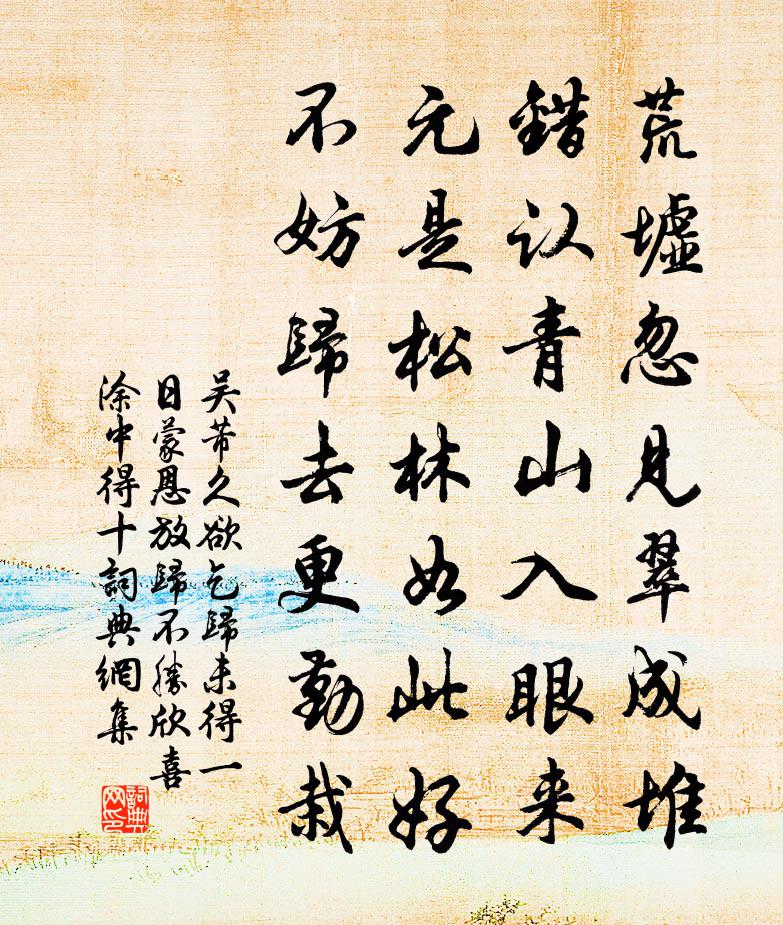 荒墟忽见翠成堆
错认青山入眼来
元是松林如此好
不妨歸去更勤栽
吴芾久欲乞歸未得一
日蒙恩放歸不勝欣喜
涂中得十詞典網集
詞典
网印